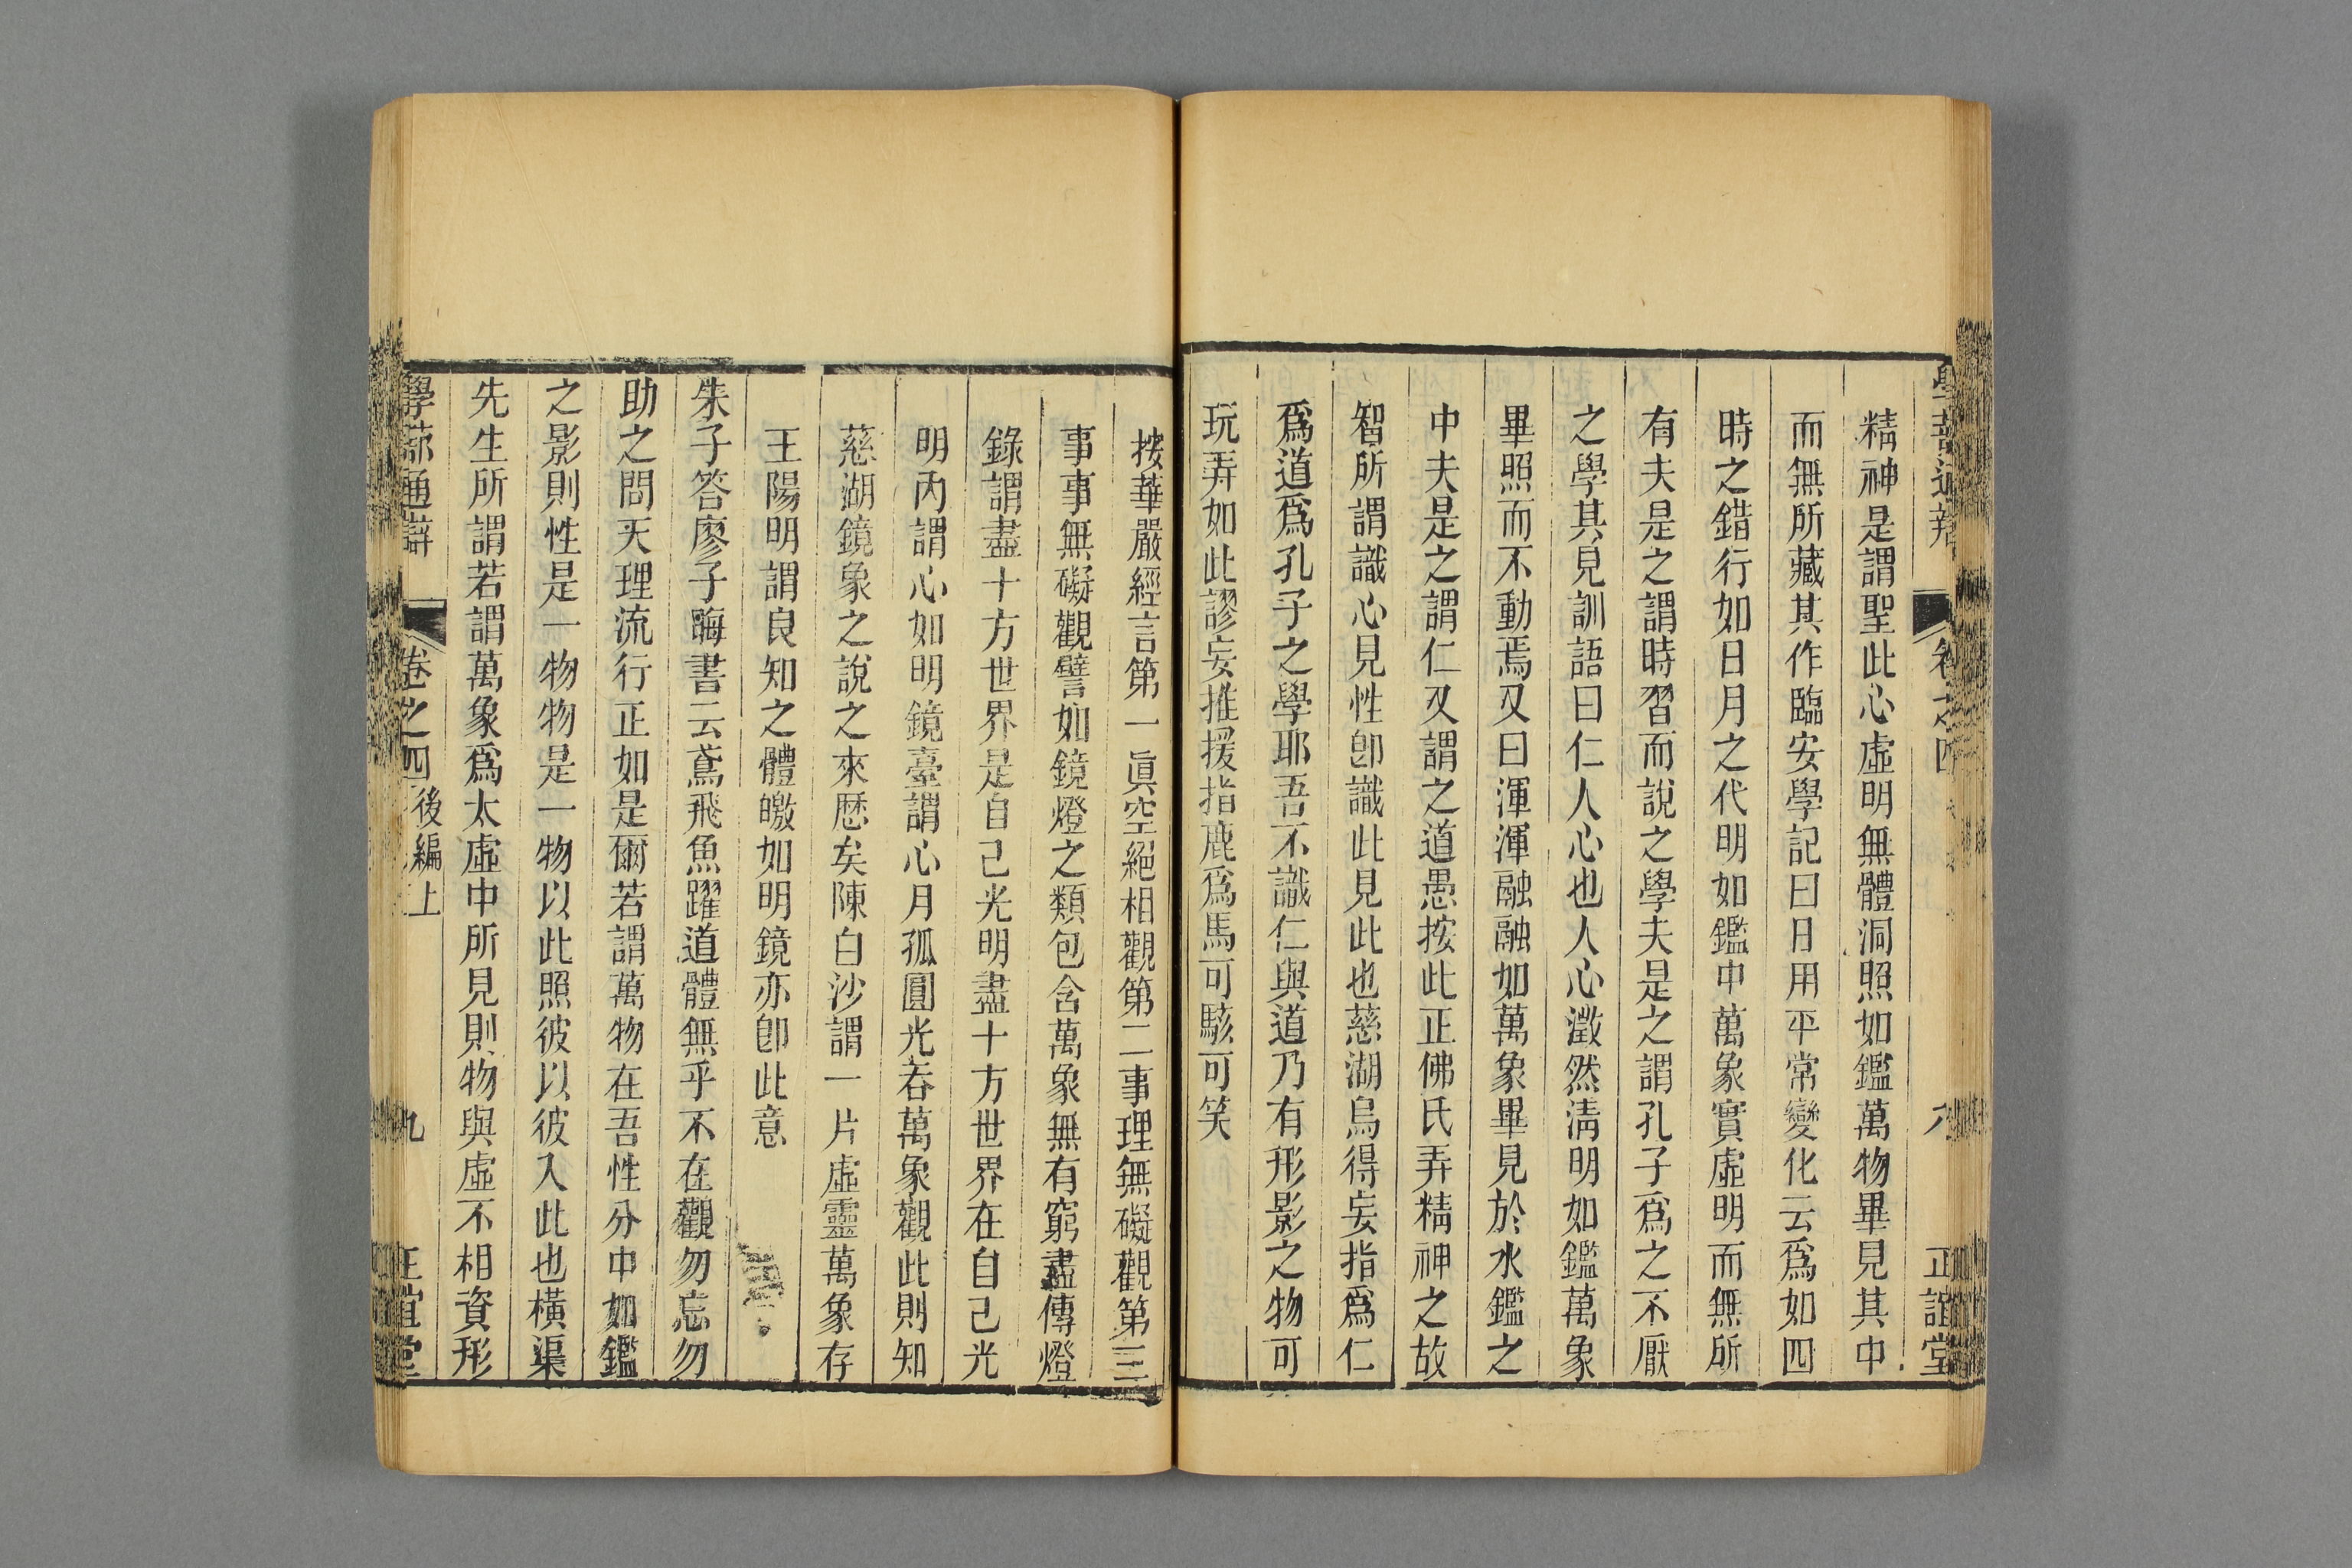 學蔀通辨 卷之四 八 正誼堂
精神是謂聖此心虛明無體洞照如鑑萬物畢見其中
而無所藏其作臨安學記曰日用平常變化云爲如四
時之錯行如日月之代明如鑑中萬象實虛明而無所
有夫是之謂時習而說之學夫是之謂孔子爲之不厭
之學其見訓語曰仁人心也人心澂然淸明如鑑萬象
畢照而不動焉又曰渾渾融融如萬象畢見於水鑑之
中夫是之謂仁又謂之道愚按此正佛氏弄精神之故
智所謂識心見性卽識此見此也慈湖烏得妄指爲仁
爲道爲孔子之學耶吾不識仁與道乃有形影之物可
玩弄如此謬妄推援指鹿爲馬可駭可笑
按華嚴經言第一眞空絕相觀第二事理無礙觀第三
事事無礙觀譬如鏡燈之類包含萬象無有窮盡傳燈
錄謂盡十方世界是自己光明盡十方世界在自己光
明內謂心如明鏡臺謂心月孤圓光吞萬象觀此則知
慈湖鏡象之說之來歷矣陳白沙謂一片虛靈萬象存
王陽明謂良知之體皦如明鏡亦卽此意
朱子答廖子晦書云鳶飛魚躍道體無乎不在觀勿忘勿
助之問天理流行正如是爾若謂萬物在吾性分中如鑑
之影則性是一物物是一物以此照彼以彼入此也橫渠
先生所謂若謂萬象爲太虛中所見則物與虛不相資形
學蔀通辯 卷之四 後編上 九 正誼堂